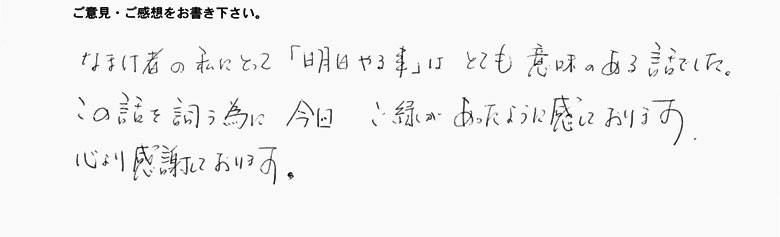 ご意見・ご感想をお書き下さい。
なまけ者の私にとって「明日やる事」は とても 意味のある話でした。
この話を詞う為に 今回 ご縁があったように感じております.
心より感謝しております。